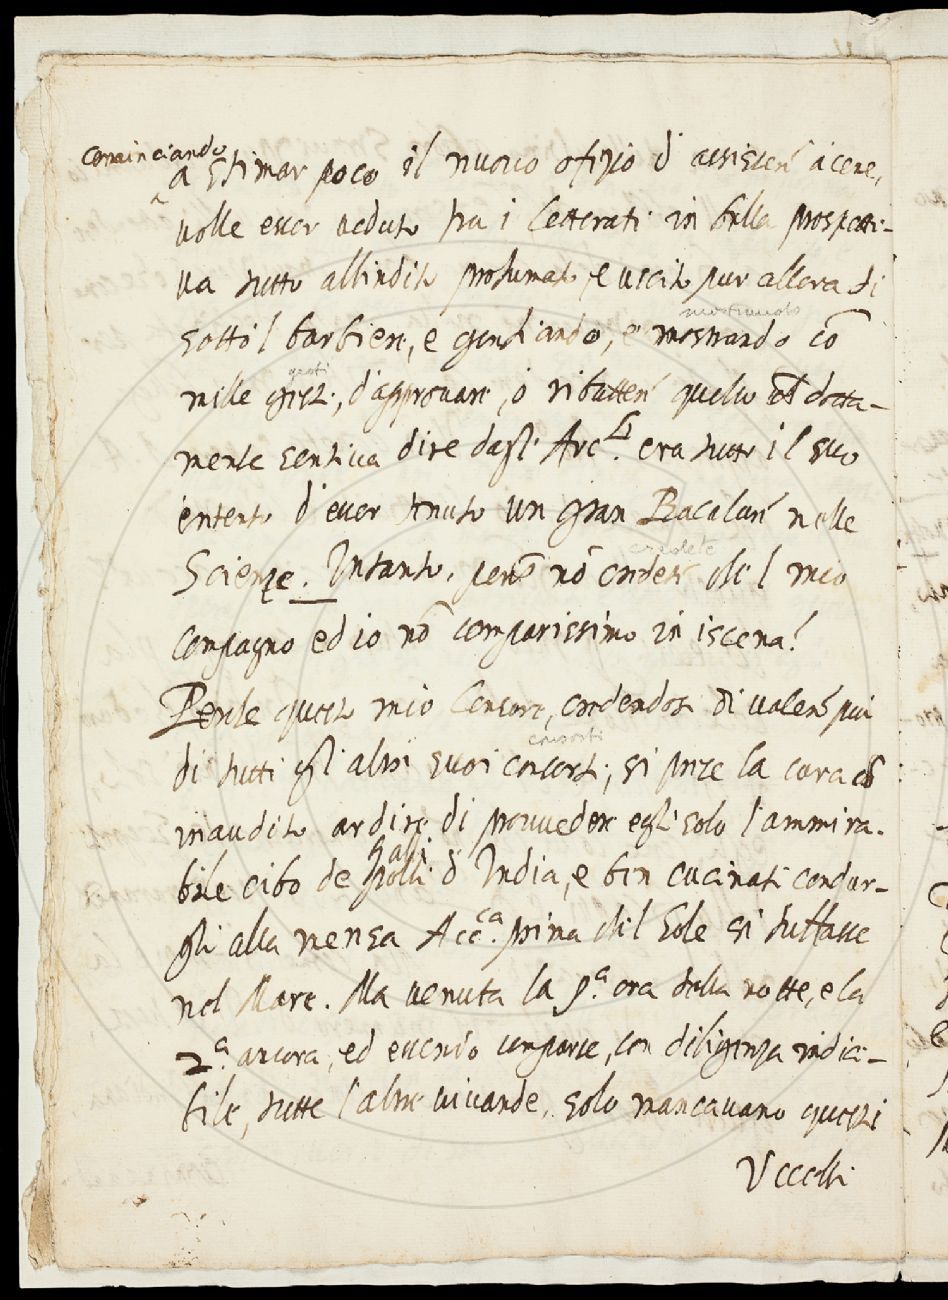 cominciando
a stimar poco il nuovo ofizio d'assister' à cene,
volle esser veduto tra i Letterati in bella prospetti-
va tutto allindito profumato, e uscito pur allora di
mostrando
sotto 'l barbiere, e gonfiando, e mostrando cō
gesti
mille gesti, d'approvare, ò ributter' quelche dotta-
mente sentiva dire dagl' Arc.di era tutto il suo
intento d'esser tenuto un gran Bacalare nelle
credete
Scienze. Intanto, però nō credete che 'l mio
compagno ed io nō comparissimo in iscena!
Perche questo mio Censore, credendosi di valere più
consorti
di tutti gl'altri suoi consorti, si prese la cura cō
inaudito ardire di provvedere egli solo l'ammira-
galli
bile cibo de polli d'India, e ben cucinati condur-
gli alla mensa Acc.ca prima che 'l Sole si tuffasse
nel Mare. Ma venuta la p.a ora della notte, e la
2.a ancora, ed essendo comparse, con diligenza indici-
bile, tutte l'altre vivande, solo mancavano questi
Uccelli